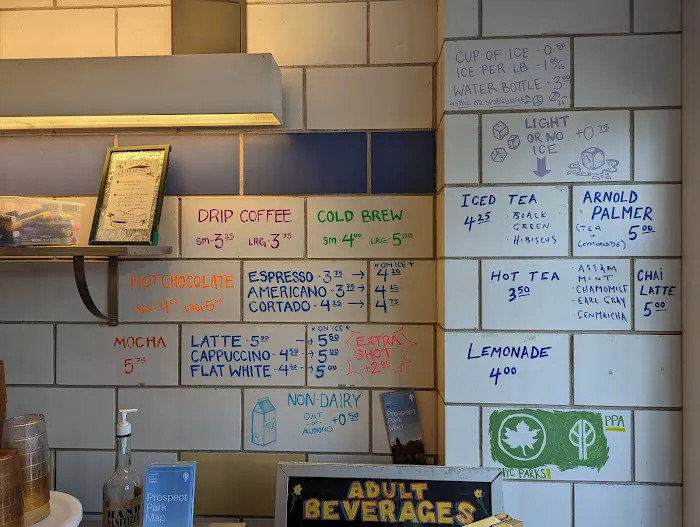 CUP OF ICE - 0.50
ICE PER LB - 1.00/lb
WATER BOTTLE - 3.00
*STILL OR SPARKLING*
LIGHT
OR NO
ICE
+0.75
DRIP COFFEE
SM - 3.25 LRG - 3.75
COLD BREW
SM - 4.00 LRG - 5.00
HOT CHOCOLATE
KID - 4.00 LRG - 5.00
ESPRESSO - 3.25
AMERICANO - 3.75
CORTADO - 4.25
*ON ICE*
4.25
4.25
4.75
MOCHA
5.75
LATTE - 5.00
CAPPUCCINO - 4.50
FLAT WHITE - 4.50
*ON ICE*
5.50
5.00
5.00
EXTRA
SHOT
+2.00
NON-DAIRY
OAT
OR
ALMOND
+0.50
ICED TEA
4.25
• BLACK
• GREEN
• HIBISCUS
ARNOLD
PALMER
(TEA
+
LEMONADE)
5.00
HOT TEA
3.50
• ASSAM
• MINT
• CHAMOMILE
• EARL GRAY
• GENMAICHA
CHAI
LATTE
5.00
LEMONADE
4.00
PPA
NYC PARKS
Prospect
Park
Map
Prospect
Park
Map
HAND
SANITIZER
ADULT
BEVERAGES